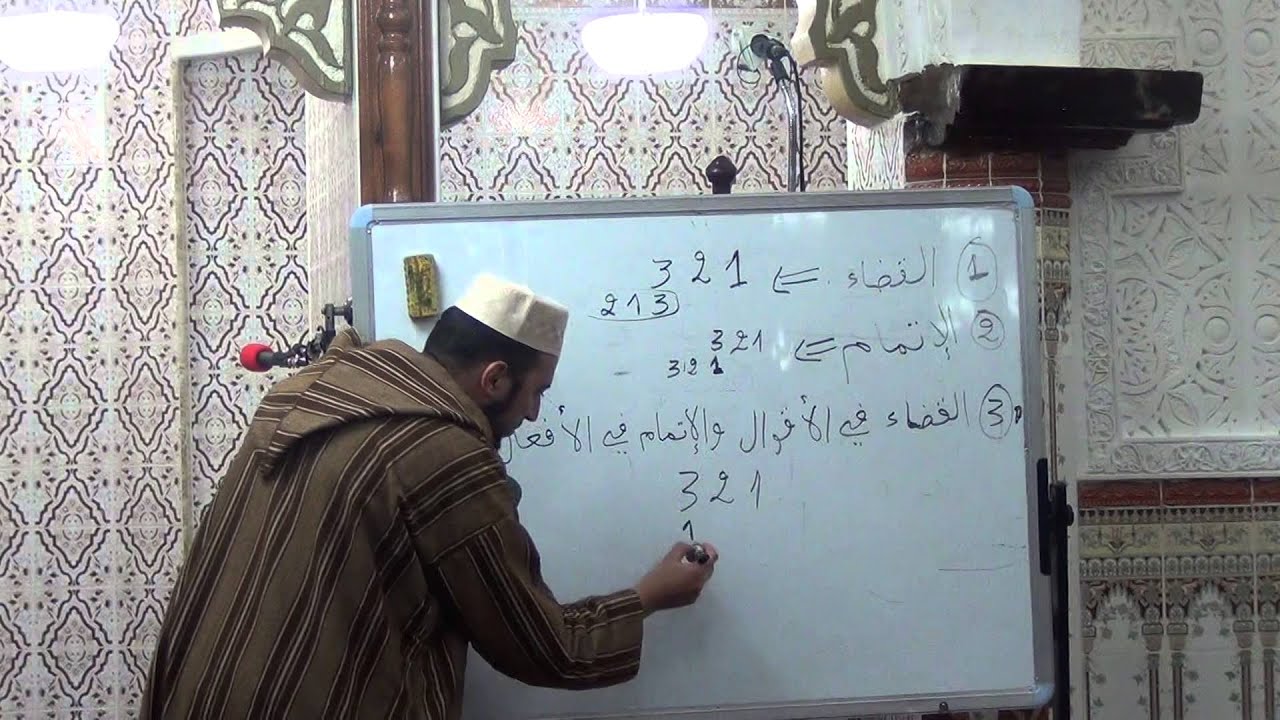 1 القضاء ⇐ 1 2 3
2 1 3
2 الإتمام ⇐ 1 2 3
3 2 1
3 القضاء في الأقوال والإتمام في الأفعال
1 2 3
1